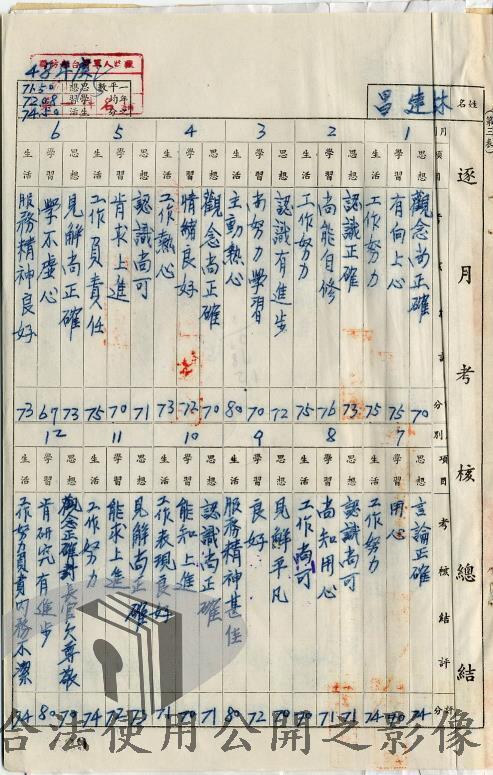 逐月考核總結
(第三表)
姓名
林建昌
48年度
思想 71.50
學習 72.08
生活 74.50
一年平均分數
月別 1 2 3 4 5 6
項目 思想 學習 生活 思想 學習 生活 思想 學習 生活 思想 學習 生活 思想 學習 生活 思想 學習 生活
觀念尚正確
有向上心
工作努力
認識正確
尚能自修
工作努力
認識有進步
尚努力學習
主動熱心
觀念尚正確
情緒良好
工作熱心
認識尚可
肯求上進
工作負責任
見解尚正確
學不虛心
服務精神良好
70 75 75 73 76 75 72 70 80 70 72 73 71 70 75 73 69 73
月別 7 8 9 10 11 12
項目 思想 學習 生活 思想 學習 生活 思想 學習 生活 思想 學習 生活 思想 學習 生活 思想 學習 生活
考核結評
言論正確
用心
工作努力
認識尚可
尚知用心
工作尚可
見解平凡
良好
服務精神甚佳
認識尚正確
能知上進
工作表現良好
見解尚正確
能求上進
工作努力
觀念正確對長官欠尊敬
肯研究有進步
工作努力負責內務不潔
評分
合法使用公開之影像